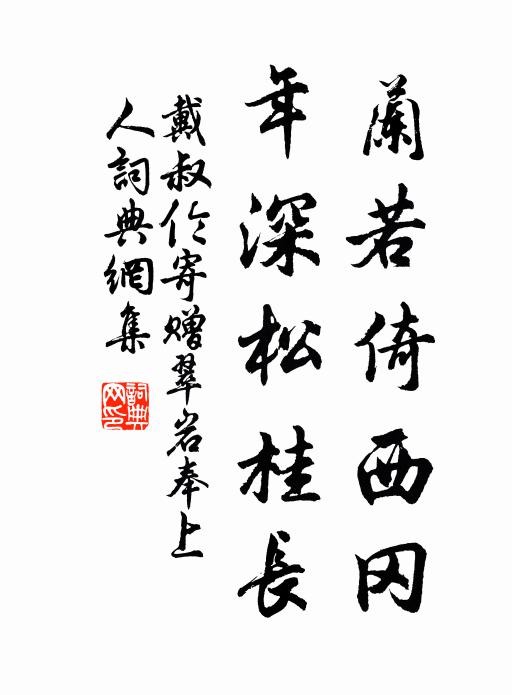 蘭若倚西冈
年深松桂長
戴叔伦寄赠翠岩奉上
人詞典網集
詞典網印